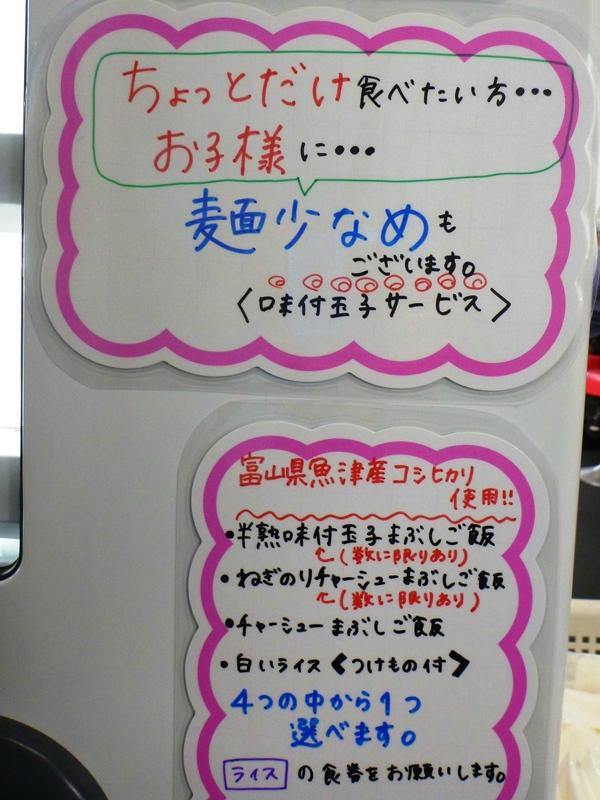 ちょっとだけ食べたい方•••
お子様に•••
麺少なめも
ございます。
〈味付玉子サービス〉
富山県魚津産コシヒカリ
使用!!
•半熟味付玉子まぶしご飯
(数に限りあり)
•ねぎのりチャーシューまぶしご飯
(数に限りあり)
•チャーシューまぶしご飯
•白いライス〈つけもの付〉
4つの中から1つ
選べます。
ライスの食券をお願いします。